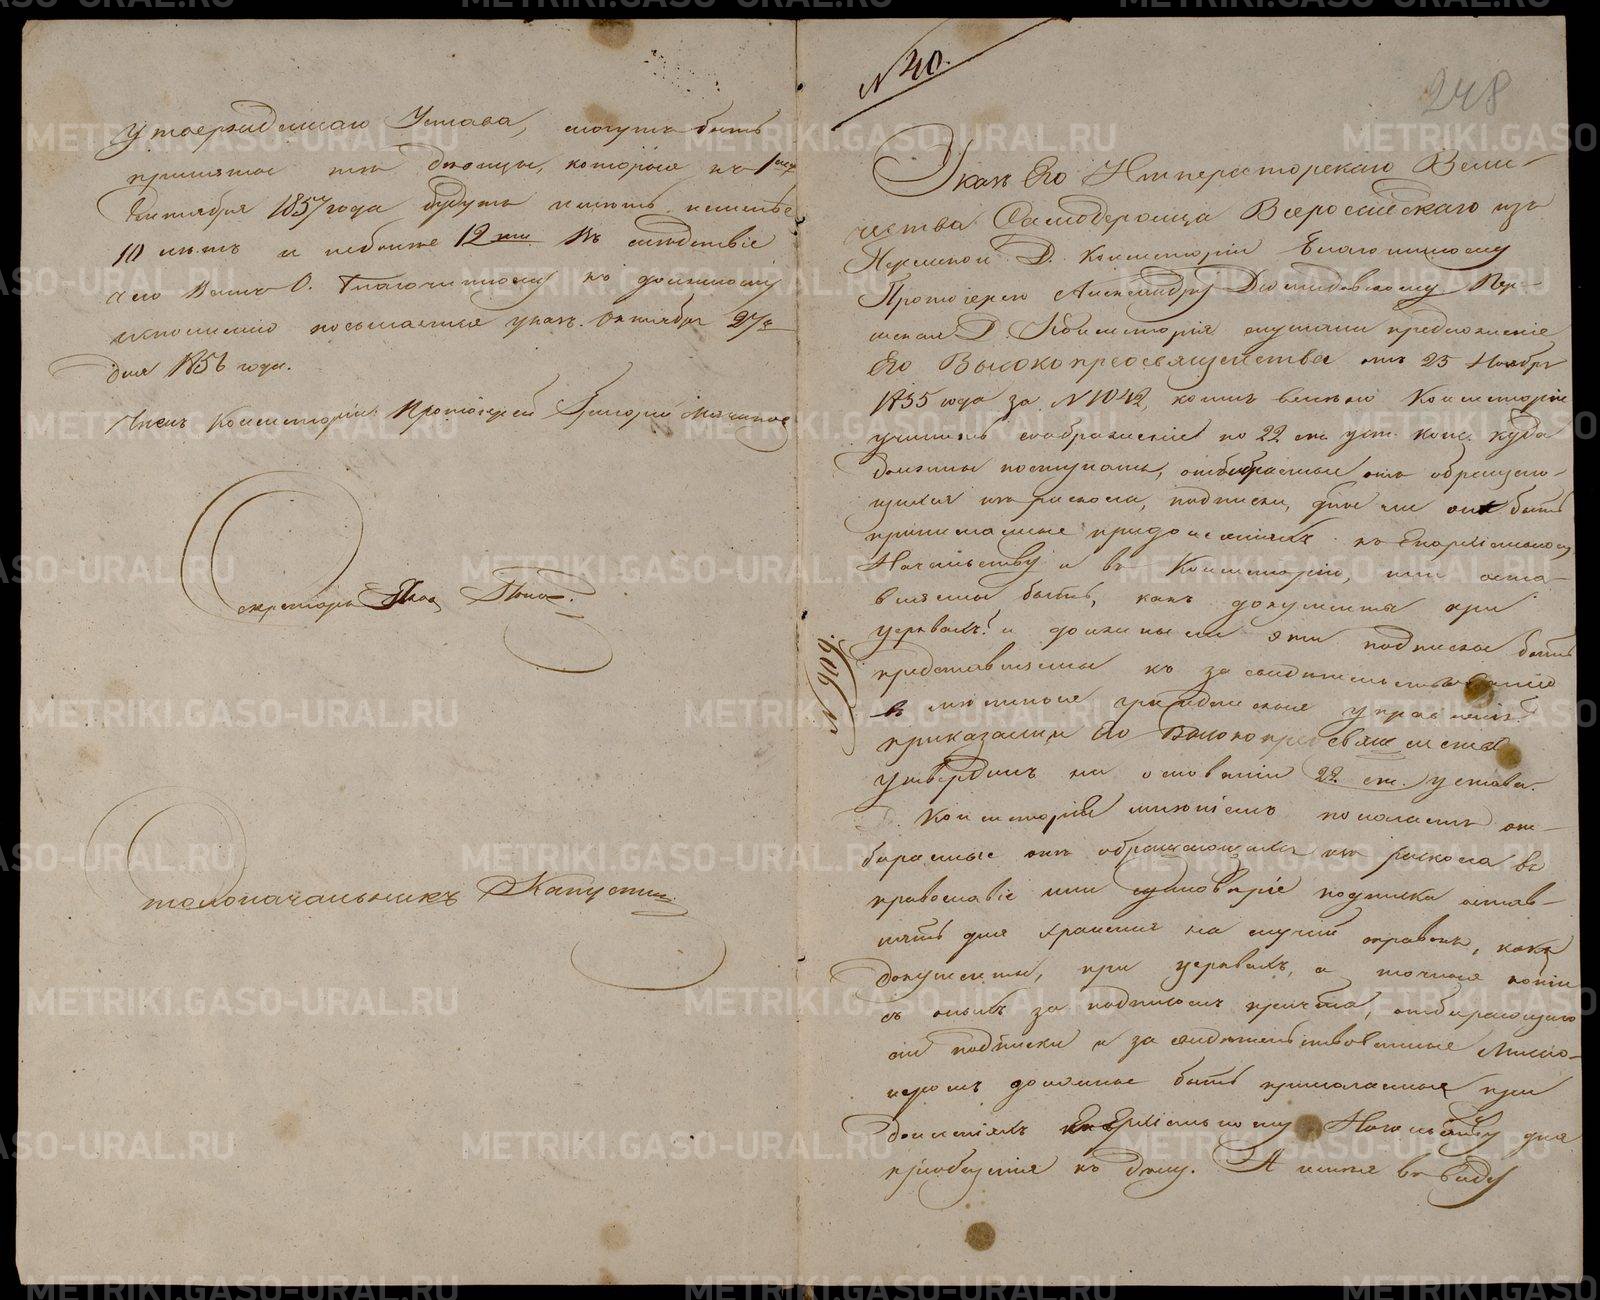 утвержденнаго Устава, могутъ быть
принятые тѣ вдовцы, которые къ 1му
Октября 1857 года будутъ имѣть неменѣе
10 лѣтъ и неболѣе 12ти. Въ слѣдствіе
чего Вамъ О. Благочинному къ должному
исполненію посылается указъ. Октября 27го
дня 1856 года.
Членъ Консисторіи Протоіерей Григорій
Секретарь Попов
Столоначальникъ Капустин
N 40.
248
Указъ Его Императорскаго Вели-
чества Самодержца Всероссійскаго изъ
Пермской Д. Консисторіи Благочинному
Протоіерею Александру Пер-
мская Д. Консисторія слушали предложеніе
Его Высокопреосвященства отъ 25 Ноября
1855 года за N 1042, коимъ велѣно Консисторіи
учинить соображеніе по 22 ст. уст. конс. куда
должны поступать, отбираемыя отъ обращаю-
щихся изъ раскола, подписки, должны ли онѣ быть
принимаемые при донесеніяхъ къ Епархіальному
Начальству и въ Консисторію, или оста-
вляемы быть, какъ документы при
церквахъ? и должны ли эти подписки быть
представляемы къ засвидѣтельствованію
въ мѣстныя гражданскія управленія?
приказали, и Его Высокопреосвященство
утвердилъ: на основаніи 22 ст. устава
Д. Консисторіи мнѣніемъ полагаетъ от-
бираемые отъ обращающихся изъ раскола въ
православіе или единовѣріе подписки остав-
лять для храненія на случай справокъ, какъ
документы, при церквахъ, а точныя копіи
съ оныхъ за подписомъ причта, отбирающаго
сіи подписки и засвидѣтельствованные Миссіо-
неромъ должные быть прилагаемы при
донесеніяхъ Епархіальному Начальству для
пріобщенія къ дѣлу. А имѣя въ виду
N 909.
METRIKI.GASO-URAL.RU